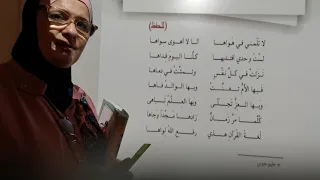 (للحفظ)
لا تلمني في هواها أنا لا أهوى سواها
لستُ وحدي أفتديها كلنا اليوم فداها
نزلت في كل نفس وتمشّت في دماها
فبها الأم تغنّت وبها الوالد فاها
وبها الفن تجلّى وبها العلم تباهى
كلّما مرّ زمانٌ زادها مجدًا وجاها
لغة القرآن هذي رفع الله لواها